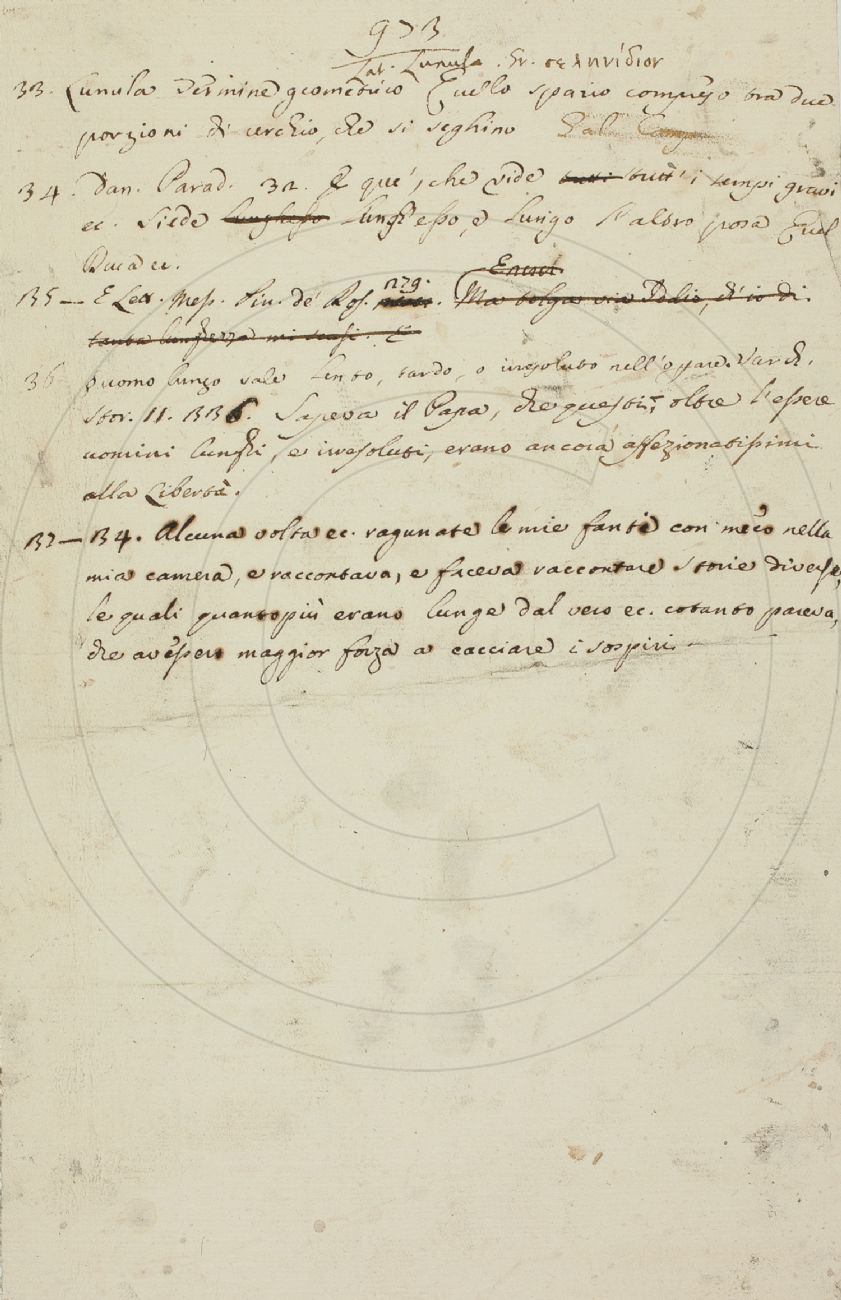 973
Lat. Lunula. Gr. σεληνίδιον
33. Lunula Termine geometrico Quello spazio compreso tra due
porzioni di cerchio, che si seghino
34. Dan. Parad. 32. E que', che vide tutti tutt' i tempi gravi
ec. Siede lunghesso Lungh' esso, e lungo l'altro posa Quel
Duca ec.
135 — E Lett. Mess. Pin. de' Ros. 279. Ma tolga via Dolio, ch'io di
tanta lunghezza mi scusi. E
36 Huomo lungo vale Lento, tardo, o irresoluto nell'oppare. Varch.
Stor. 11. 336. Sapeva il Papa, che questi, oltre l'essere
uomini lunghi, e irresoluti, erano ancora affezionatissimi
alla Libertà.
137 — 34. Alcuna volta ec. ragunate le mie fanti con meco nella
mia camera, e raccontava, e faceva raccontare Storie diverse,
le quali quanto più erano lunge dal vero ec. cotanto pareva,
che avessero maggior forza a cacciare i sospiri